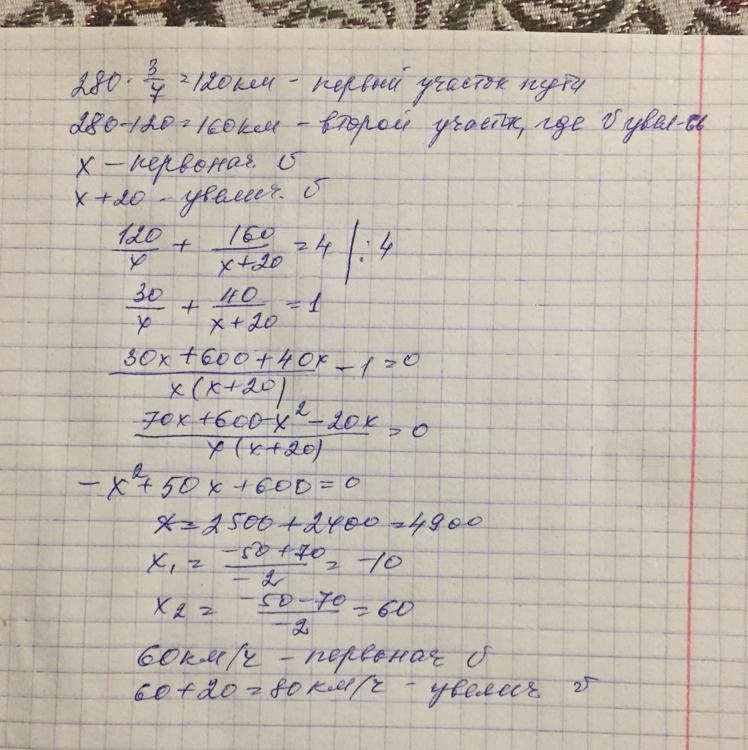 280 · 3/7 = 120км – первый участок пути
280-120=160км – второй участок, где υ увел-сь
x – первонач. υ
x+20 – увелич. υ
120/x + 160/(x+20) = 4 | :4
30/x + 40/(x+20) = 1
(30x+600+40x)/(x(x+20)) – 1 = 0
(70x+600-x² – 20x)/(x(x+20)) = 0
– x² + 50x + 600 = 0
x = 2500 + 2400 = 4900
x₁ = (-50+70)/(-2) = -10
x₂ = (-50-70)/(-2) = 60
60км/ч – первонач υ
60+20=80км/ч – увелич υ